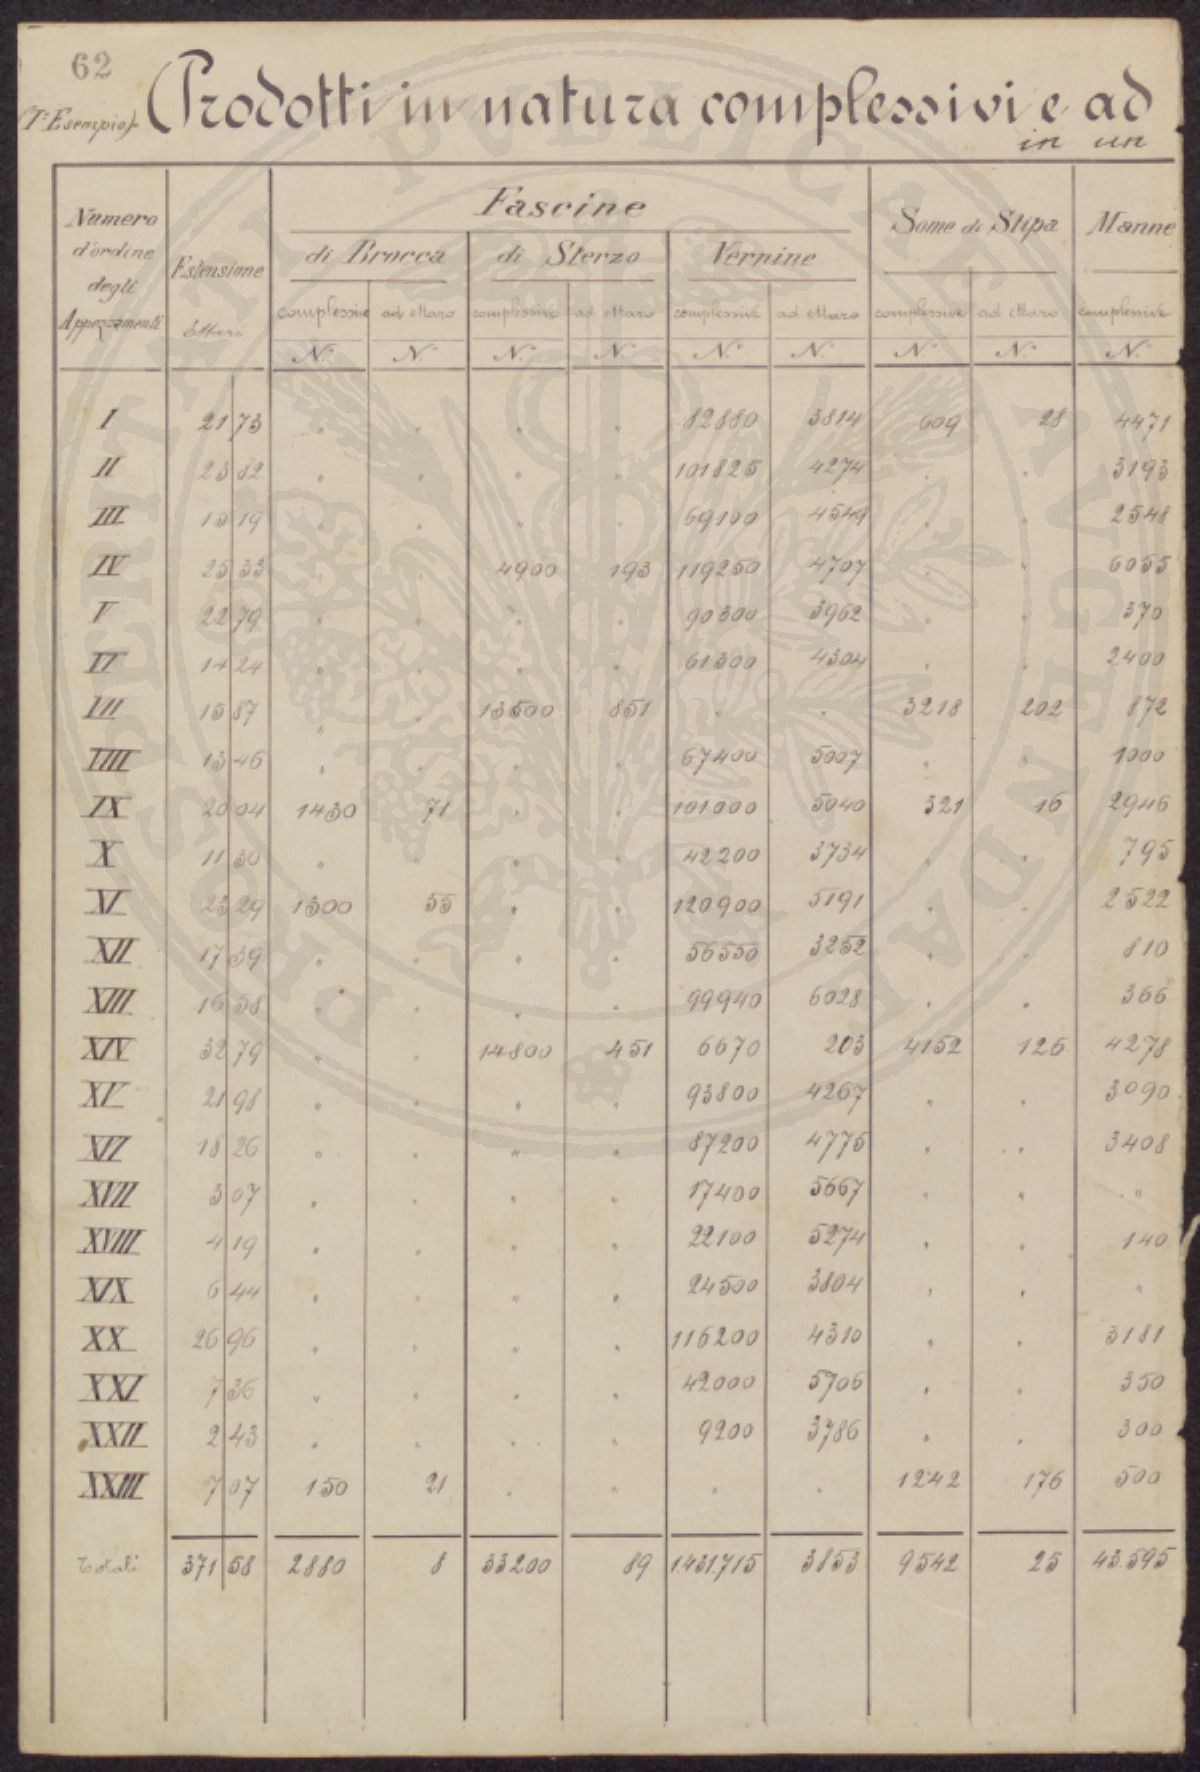 62
(I° Esempio). Prodotti in natura complessivi e ad
in un
Numero d'ordine degli Appezzamenti
Estensione
Ettari
Fascine
Some di Stipa
Manne
di Brocca
di Sterzo
Vernine
complessive ad ettaro complessive ad ettaro complessive ad ettaro complessive ad ettaro complessive
N.° N.° N.° N.° N.° N.° N.° N.° N.°
I 21 73 " " " " 82880 3814 609 28 4471
II 23 82 " " " " 101825 4274 " " 3193
III 15 19 " " " " 69100 4549 " " 2548
IV 25 33 " " 4900 193 119250 4707 " " 6055
V 22 79 " " " " 90300 3962 " " 370
VI 14 24 " " " " 61300 4304 " " 2400
VII 15 87 " " 13500 851 " " 3218 202 872
VIII 13 46 " " " " 67400 5007 " " 1000
IX 20 04 1430 71 " " 101000 5040 321 16 2946
X 11 30 " " " " 42200 3734 " " 795
XI 23 29 1300 55 " " 120900 5191 " " 2522
XII 17 39 " " " " 56550 3252 " " 810
XIII 16 58 " " " " 99940 6028 " " 366
XIV 32 79 " " 14800 451 6670 203 4152 126 4278
XV 21 98 " " " " 93800 4267 " " 3090
XVI 18 26 " " " " 87200 4775 " " 3408
XVII 3 07 " " " " 17400 5667 " " "
XVIII 4 19 " " " " 22100 5274 " " 140
XIX 6 44 " " " " 24500 3804 " " "
XX 26 96 " " " " 116200 4310 " " 3181
XXI 7 36 " " " " 42000 5706 " " 350
XXII 2 43 " " " " 9200 3786 " " 300
XXIII 7 07 150 21 " " " " 1242 176 500
Totali 371 58 2880 8 33200 89 1.431.715 3853 9542 25 43.595
PUBLICAE AVGENDA